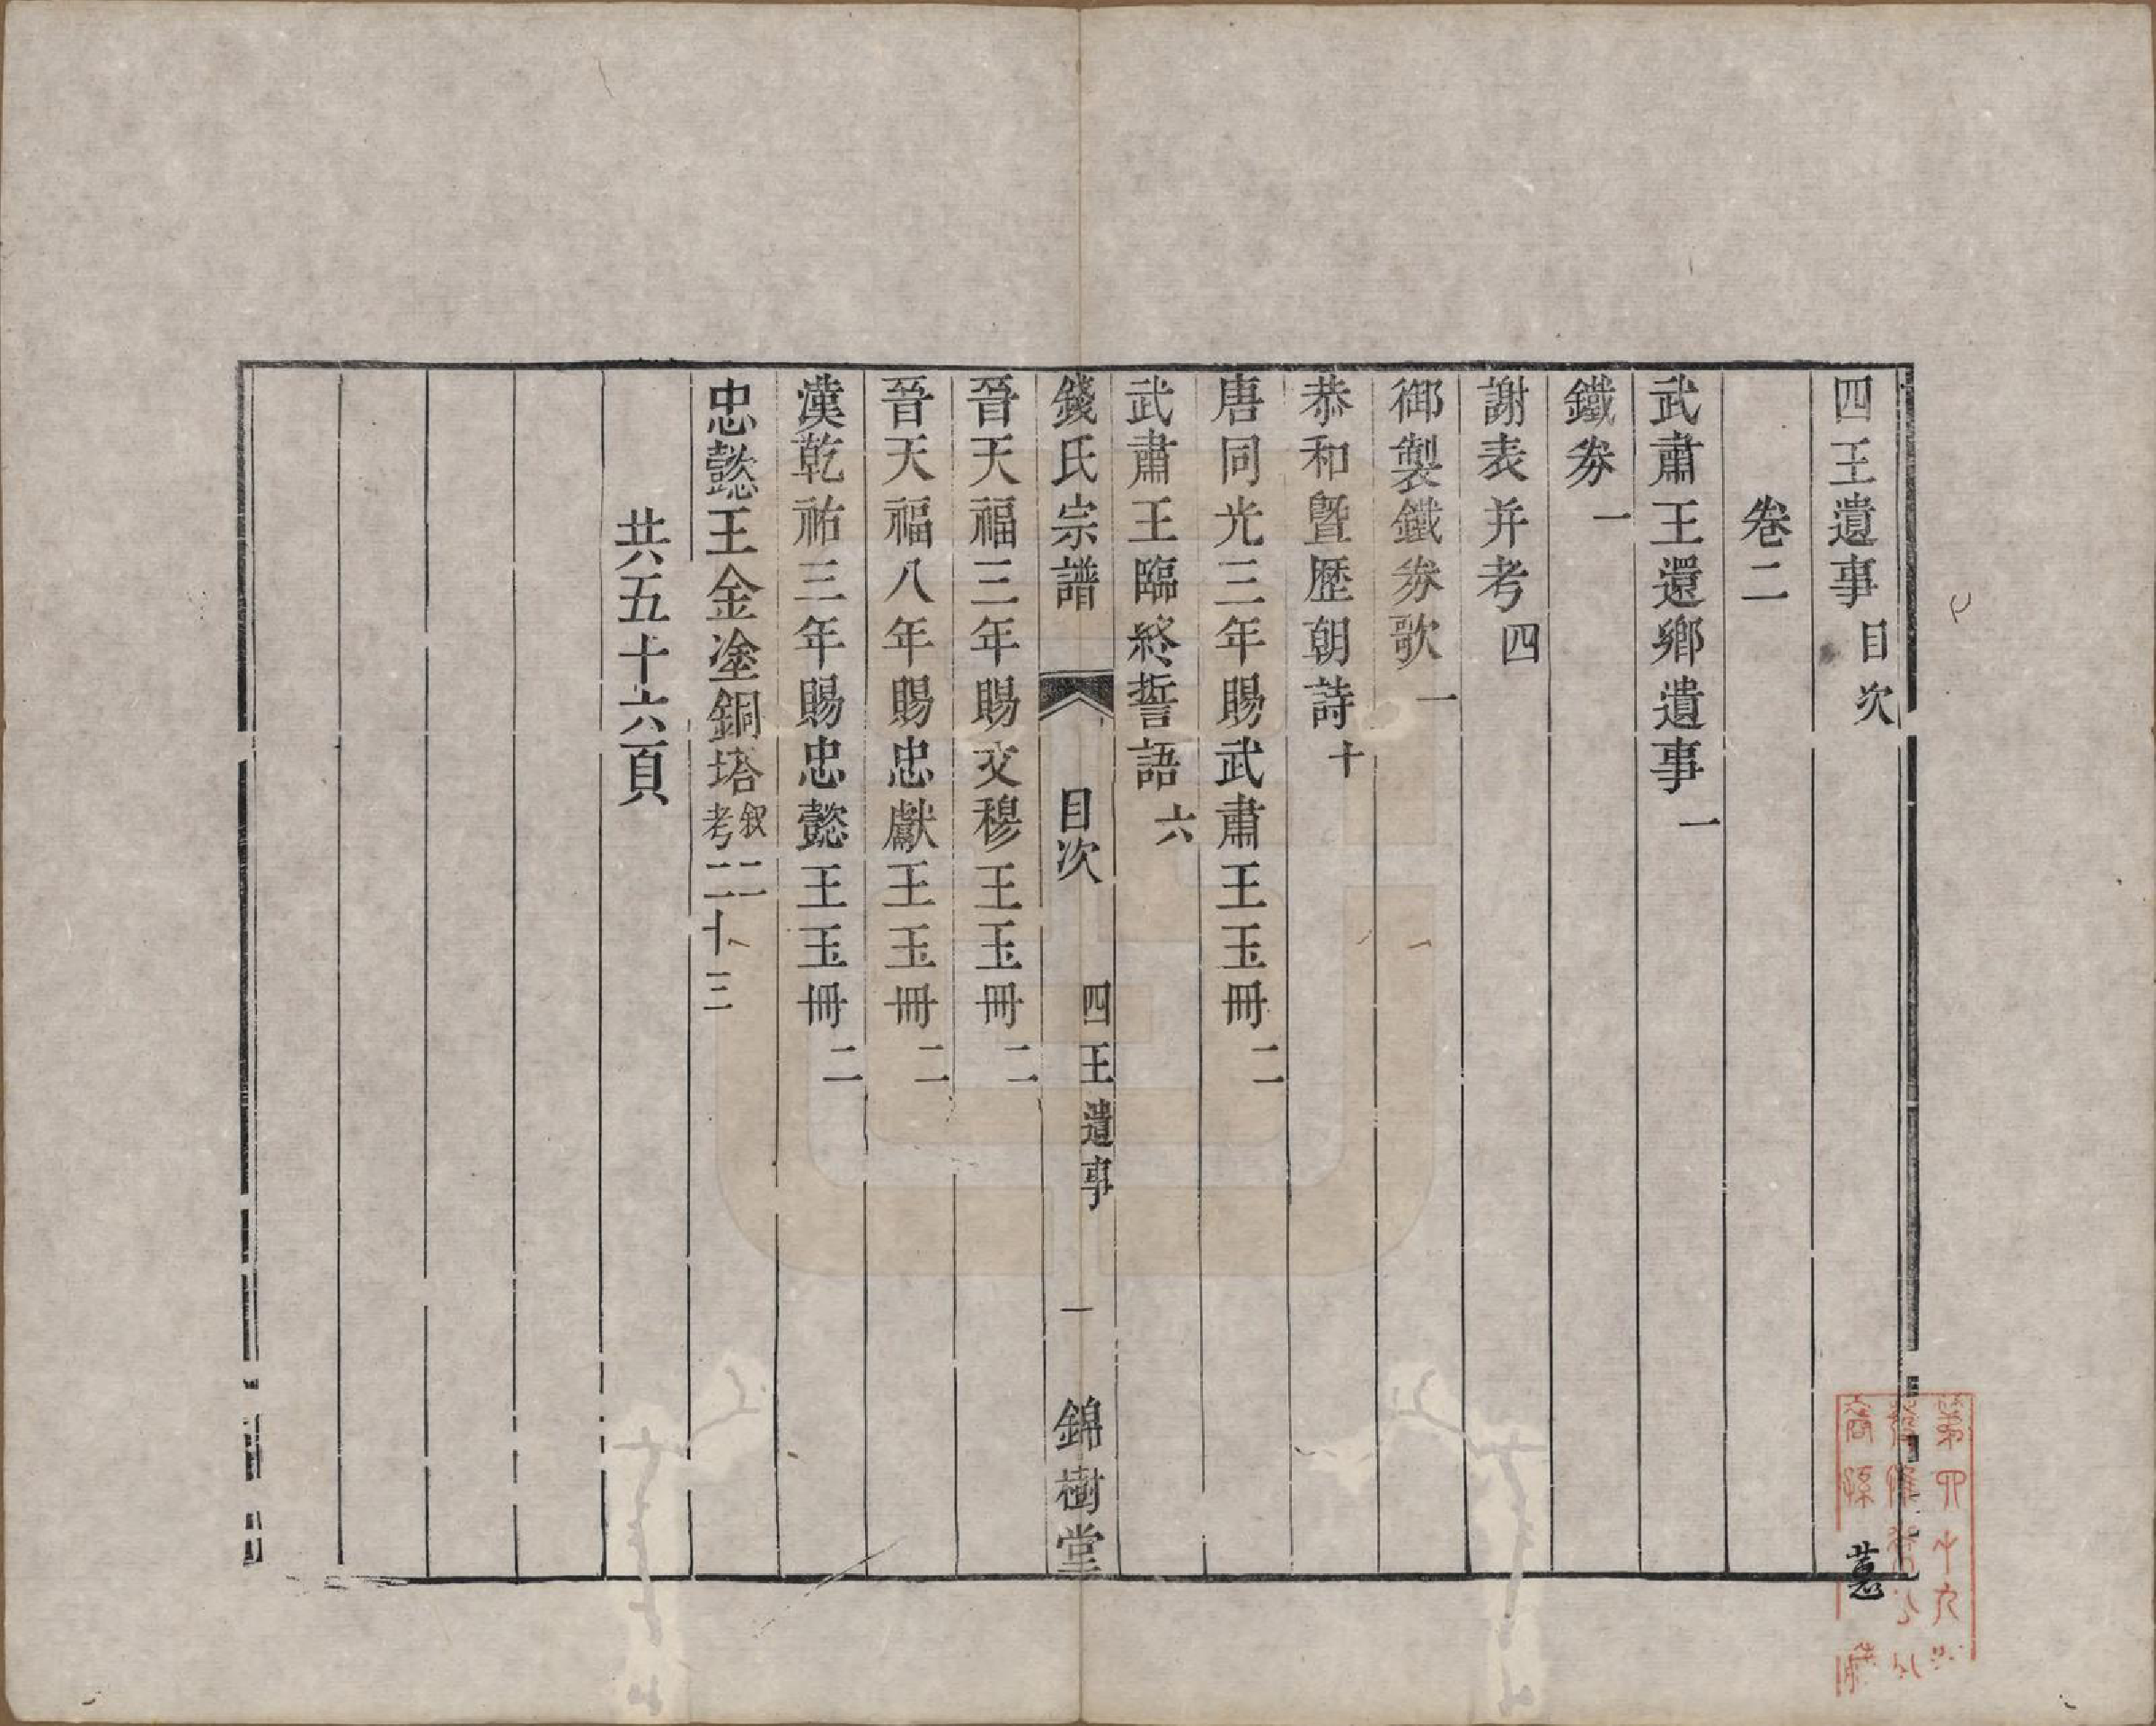 四王遺事目次
卷二
武肅王還鄉遺事一
鐵劵一
謝表并考四
御製鐵劵歌一
恭和曁歷朝詩十
唐同光三年賜武肅王玉冊二
武肅王臨終誓語六
錢氏宗譜 目次 四王遺事 一 錦樹堂
晉天福三年賜文穆王玉冊二
晉天福八年賜忠獻王玉冊二
漢乾祐三年賜忠懿王玉冊二
忠懿王金塗銅塔叙二考二十三
共五十六頁